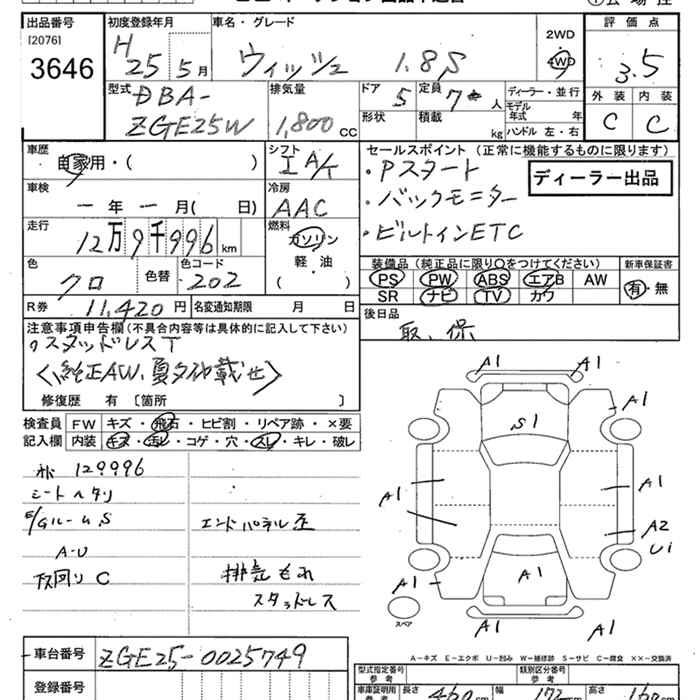 出品番号 初度登録年月 車名・グレード 評価点
[2076] H 25年 5月 ウィッシュ 1.8S 2WD 4WD 3.5
3646
型式 DBA-ZGE25W 排気量 1,800 CC ドア 5 定員 7 人 ディーラー・並行 外装 内装
形状 積載 kg モデル年式 年 ハンドル 左・右 C C
車歴 自家用・( ) シフト IA/T セールスポイント (正常に機能するものに限ります)
・Pスタート
・バックモニター
・ビルトインETC
ディーラー出品
車検 ー年ー月( 日) 冷房 AAC
走行 12万9千996 km 燃料 ガソリン
軽・油
( )
色 クロ 色替 色コード 202
装備品 (純正品に限り○をつけてください) 新車保証書
PS PW ABS エアB AW 有・無
SR ナビ TV カワ
R券 11,420円 名変通知期限 月 日
後日品
取、保
注意事項申告欄 (不具合内容等は具体的に記入して下さい)
スタッドレスT
(純正AW、夏タイヤ載せ)
修復歴 有 〔箇所 〕
検査員 FW キズ・飛石・ヒビ割・リペア跡・×要
記入欄 内装 キズ・汚れ・コゲ・穴・スレ・キレ・破レ
129996
シートヘタリ
E/Gルーム S エンドパネル歪
A-U
下回りC 排気もれ
スタッドレス
A1 A1
A1
S1
A1 A1
A2
U1
A1 A1
スペア
A1 A1
A-キズ E-エクボ U-凹み W-補修跡 S-サビ C-腐食 ××-交換済
車台番号 ZGE25-0025749
登録番号
型式指定番号 類別区分番号
参考 参考
車庫証明用 長さ 460 cm 幅 172 cm 高さ 160 cm
参考